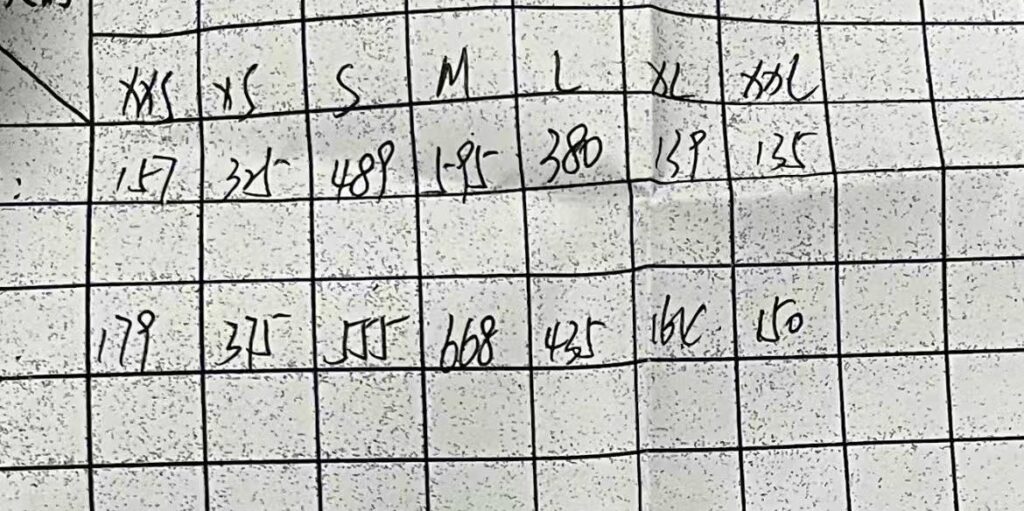 XXS XS S M L XL XXL
: 157 325 489 595 380 139 135
179 375 555 668 435 150